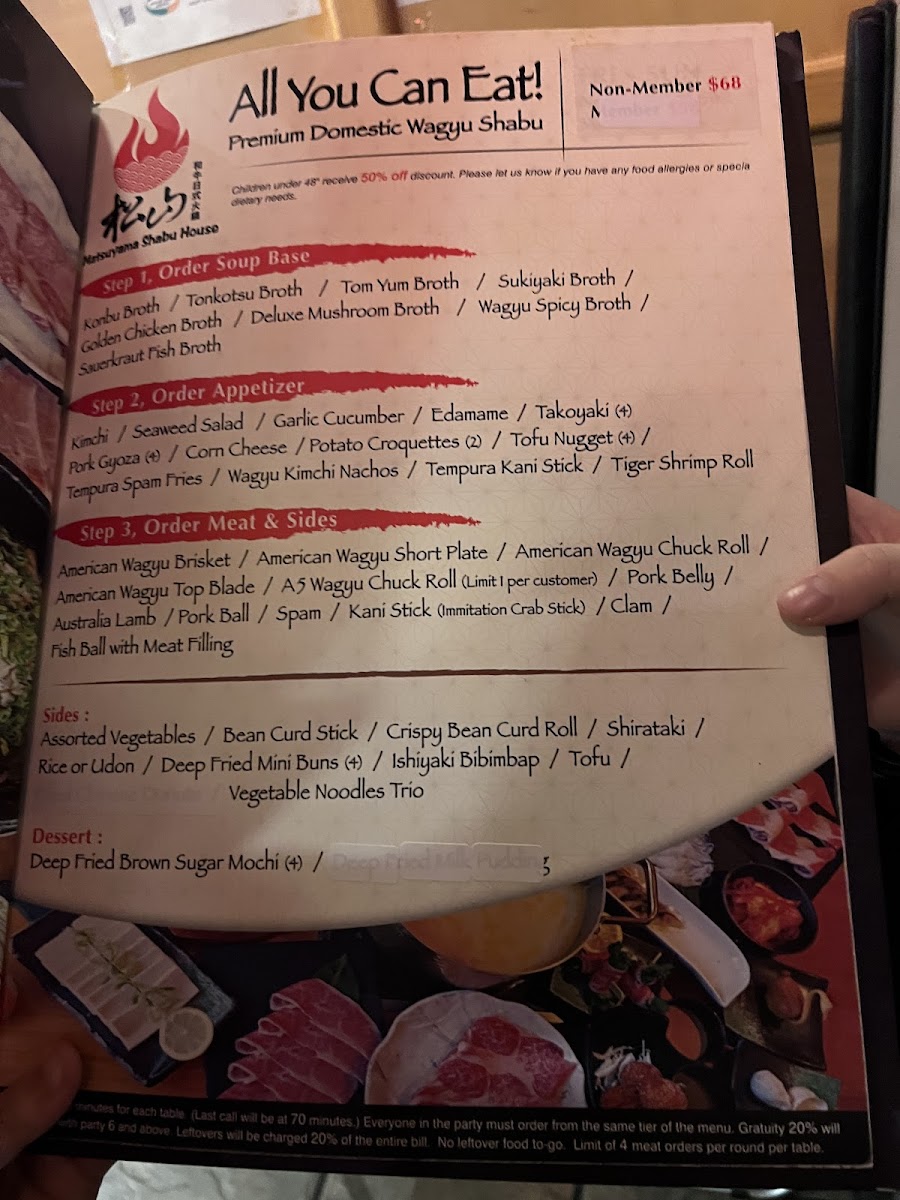 All You Can Eat!
Premium Domestic Wagyu Shabu
Non-Member $68
Member
Children under 48" receive 50% off discount. Please let us know if you have any food allergies or specia
dietary needs.
和牛日式火鍋
松山
Matsuyama Shabu House
Step 1, Order Soup Base
Konbu Broth / Tonkotsu Broth / Tom Yum Broth / Sukiyaki Broth /
Golden Chicken Broth / Deluxe Mushroom Broth / Wagyu Spicy Broth /
Sauerkraut Fish Broth
Step 2, Order Appetizer
Kimchi / Seaweed Salad / Garlic Cucumber / Edamame / Takoyaki (4)
Pork Gyoza (4) / Corn Cheese / Potato Croquettes (2) / Tofu Nugget (4) /
Tempura Spam Fries / Wagyu Kimchi Nachos / Tempura Kani Stick / Tiger Shrimp Roll
Step 3, Order Meat & Sides
American Wagyu Brisket / American Wagyu Short Plate / American Wagyu Chuck Roll /
American Wagyu Top Blade / A5 Wagyu Chuck Roll (Limit 1 per customer) / Pork Belly /
Australia Lamb / Pork Ball / Spam / Kani Stick (Immitation Crab Stick) / Clam /
Fish Ball with Meat Filling
Sides :
Assorted Vegetables / Bean Curd Stick / Crispy Bean Curd Roll / Shirataki /
Rice or Udon / Deep Fried Mini Buns (4) / Ishiyaki Bibimbap / Tofu /
/ Vegetable Noodles Trio
Dessert :
Deep Fried Brown Sugar Mochi (4) / Deep Fried Milk Pudding
minutes for each table. (Last call will be at 70 minutes.) Everyone in the party must order from the same tier of the menu. Gratuity 20% will
party 6 and above. Leftovers will be charged 20% of the entire bill. No leftover food to-go. Limit of 4 meat orders per round per table.